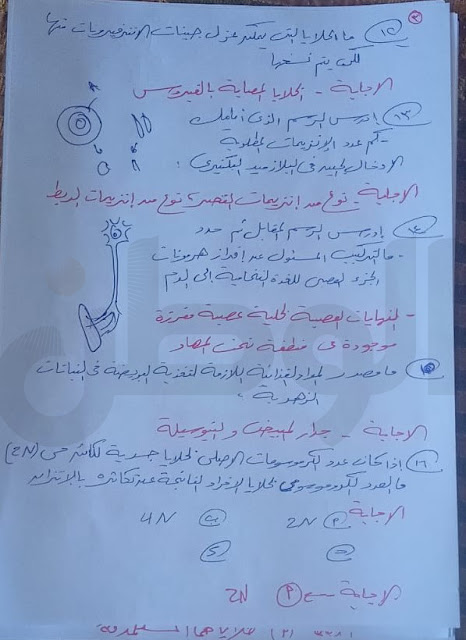 ٢
١٢ ما الخلايا التى يمكن عزل جينات الانترفيرونات منها
لكى يتم نسخها
الإجابة - الخلايا المصابة بالفيروس
١٣ إدرس الرسم الذى أمامك
- كم عدد الإنزيمات المطلوبة
لإدخال الجين فى البلازميد البكتيرى :
الإجابة - نوع من إنزيمات القصر ، نوع من إنزيمات الربط
١٤ إدرس الرسم المقابل ثم حدد
- ما التركيب المسئول عن إفراز هرمونات
الجزء العصبى للغدة النخامية إلى الدم
- النهايات العصبية لخلية عصبية مفرزة
موجودة فى منطقة تحت المهاد
١٥ ما مصدر المواد الغذائية اللازمة لتغذية البويضة فى النباتات
الزهرية
الإجابة - جدار المبيض والنيوسيلة
١٦ إذا كان عدد الكروموسومات الأصلى لخلايا جسدية لكائن حى (2N)
ما العدد الكروموسومى لخلايا الأفراد الناتجة عن تكاثره بالاقتران
الإجابة
أ 2N ب 4N
ج د
الإجابة أ 2N
الوطن